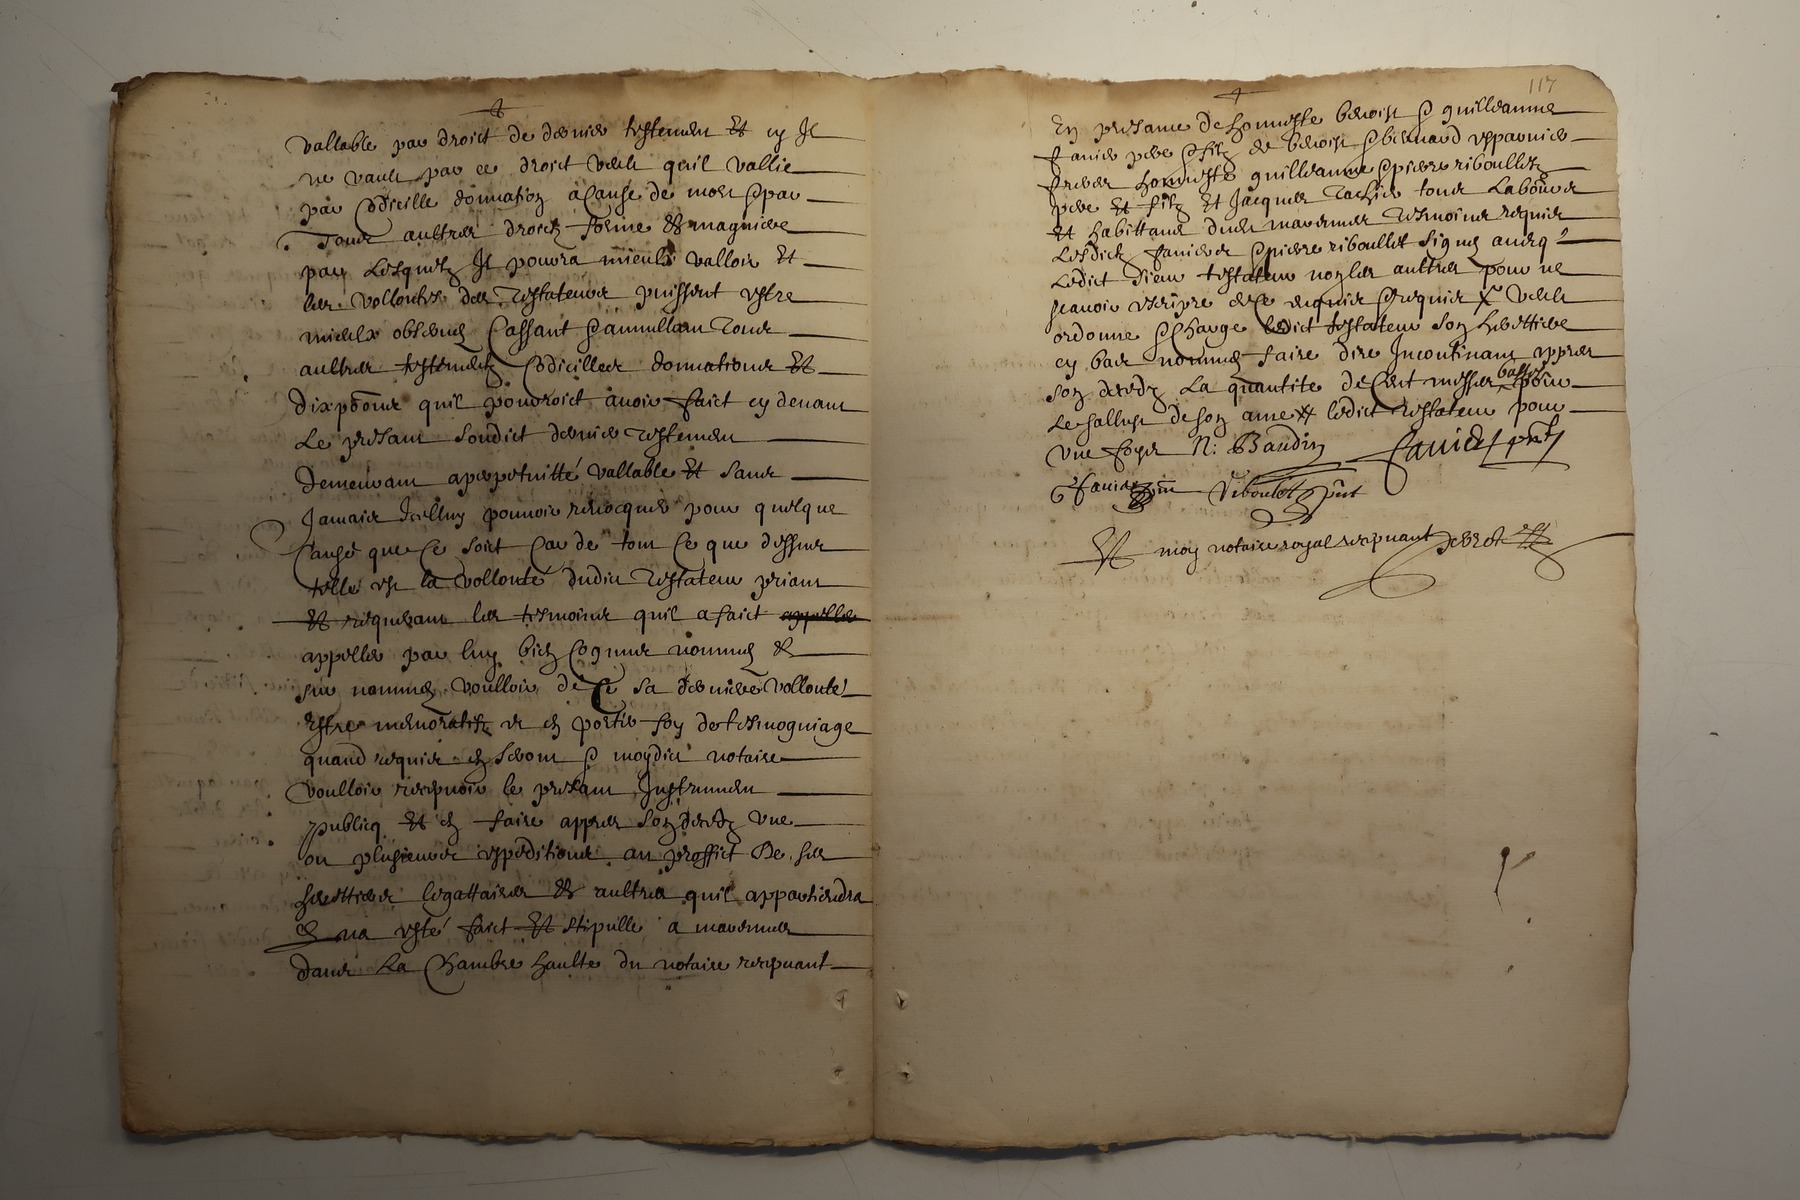 vallable par droict de dernier testement Et cy Il
ne vault par ce droict veult quil vallie
par Codicille donnation à Cause de mort & par
Tous aultres droictz forme Et magniere
par Lesquelz Il pourra mieulx valloir Et
les vollontes des Testateurs puissent estre
mieulx observes Cassant & annullant Tous
aultres testementz Codicilles donnations Et
quil pourroict avoir faict cy devant
Le presant sondict dernier Testement
demeurant a perpetuitté vallable Et sans
Jamais Icelluy pouvoir revocquer pour quelque
Cause que Ce soict Car de tout Ce que dessus
telle est la vollonté dudict Testateur priant
Et requerant les tesmoins quil a faict appeller
appeller par luy bien Cognus nommes &
sur nommes voulloir de Ce sa derniere vollonté
Estre memoratifz et en porter foy de tesmogniage
quand requis en seront & moydict notaire
voulloir recepvoir le presant Instrument
publicq Et en faire appres son decedz une
ou plusieurs expeditions au proffict De ses
herettiers legattaires & aultres quil appartiendra
Ce na esté faict Et stipullé a
dans La Chambre haulte du notaire recepvant
117
En presance de honneste benoist & guilleaume
Janier pere & filz & benoist & bernard
freres honneste guilleaume & pierre riboullet
pere Et filz Et Jacques tous Laboureurs
Et habittans dudit tesmoins requis
Lesdictz Janiers & pierre riboullet signes avecq
Ledict sieur testateur non les aultres pour ne
scavoir escripre de Ce enquis & requis veult
ordonne & Charge ledict testateur son herettiere
en bas nommée faire dire Incontinant appres
son decedz La quantité de Cent messes basses pour
Le sallust de son ame ledict testateur pour
une foys N: Baudin Janier pnt
Janier riboulet pnt
Et moy notaire royal recepvant